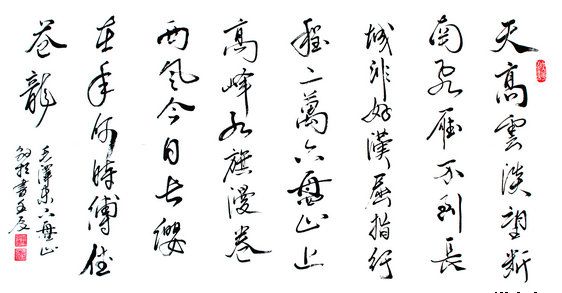 天高雲淡望斷
南飛雁不到長
城非好漢屈指行
程二萬六盤山上
高峰紅旗漫卷
西風今日長纓
在手何時縛住
蒼龍
毛澤東六盤山
書